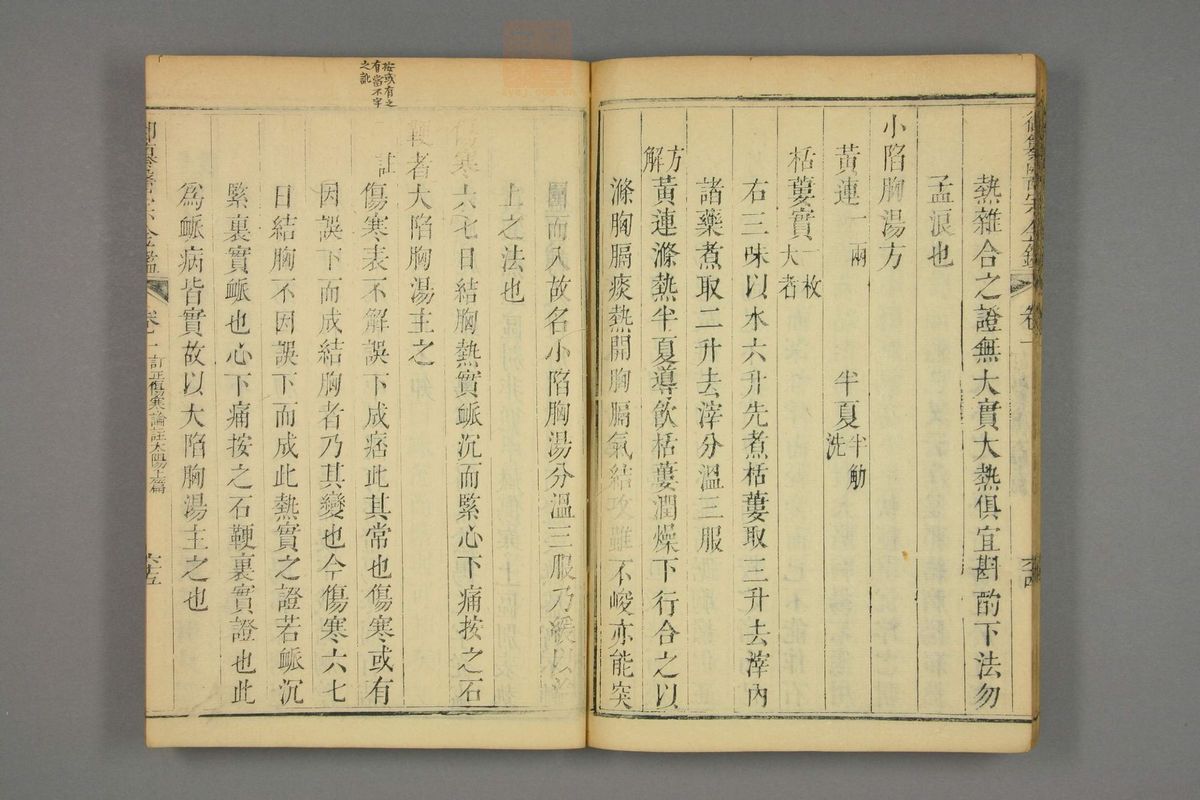 熱雜合之證無大實大熱俱宜斟酌下法勿
孟浪也
小陷胸湯方
黃連一兩 半夏半觔洗
栝蔞實一枚大者
右三味以水六升先煮栝蔞取三升去滓內
諸藥煮取二升去滓分溫三服
方解 黃連滌熱半夏導飲栝蔞潤燥下行合之以
滌胸膈痰熱開胸膈氣結攻雖不峻亦能突
圍而入故名小陷胸湯分溫三服乃緩以治
上之法也
傷寒六七日結胸熱實衇沉而緊心下痛按之石
鞕者大陷胸湯主之
按或有之
有當不字
之訛
註 傷寒表不解誤下成痞此其常也傷寒或有
因誤下而成結胸者乃其變也今傷寒六七
日結胸不因誤下而成此熱實之證若衇沉
緊裏實衇也心下痛按之石鞕裏實證也此
為衇病皆實故以大陷胸湯主之也
卷十一 訂正傷寒論註太陽上篇